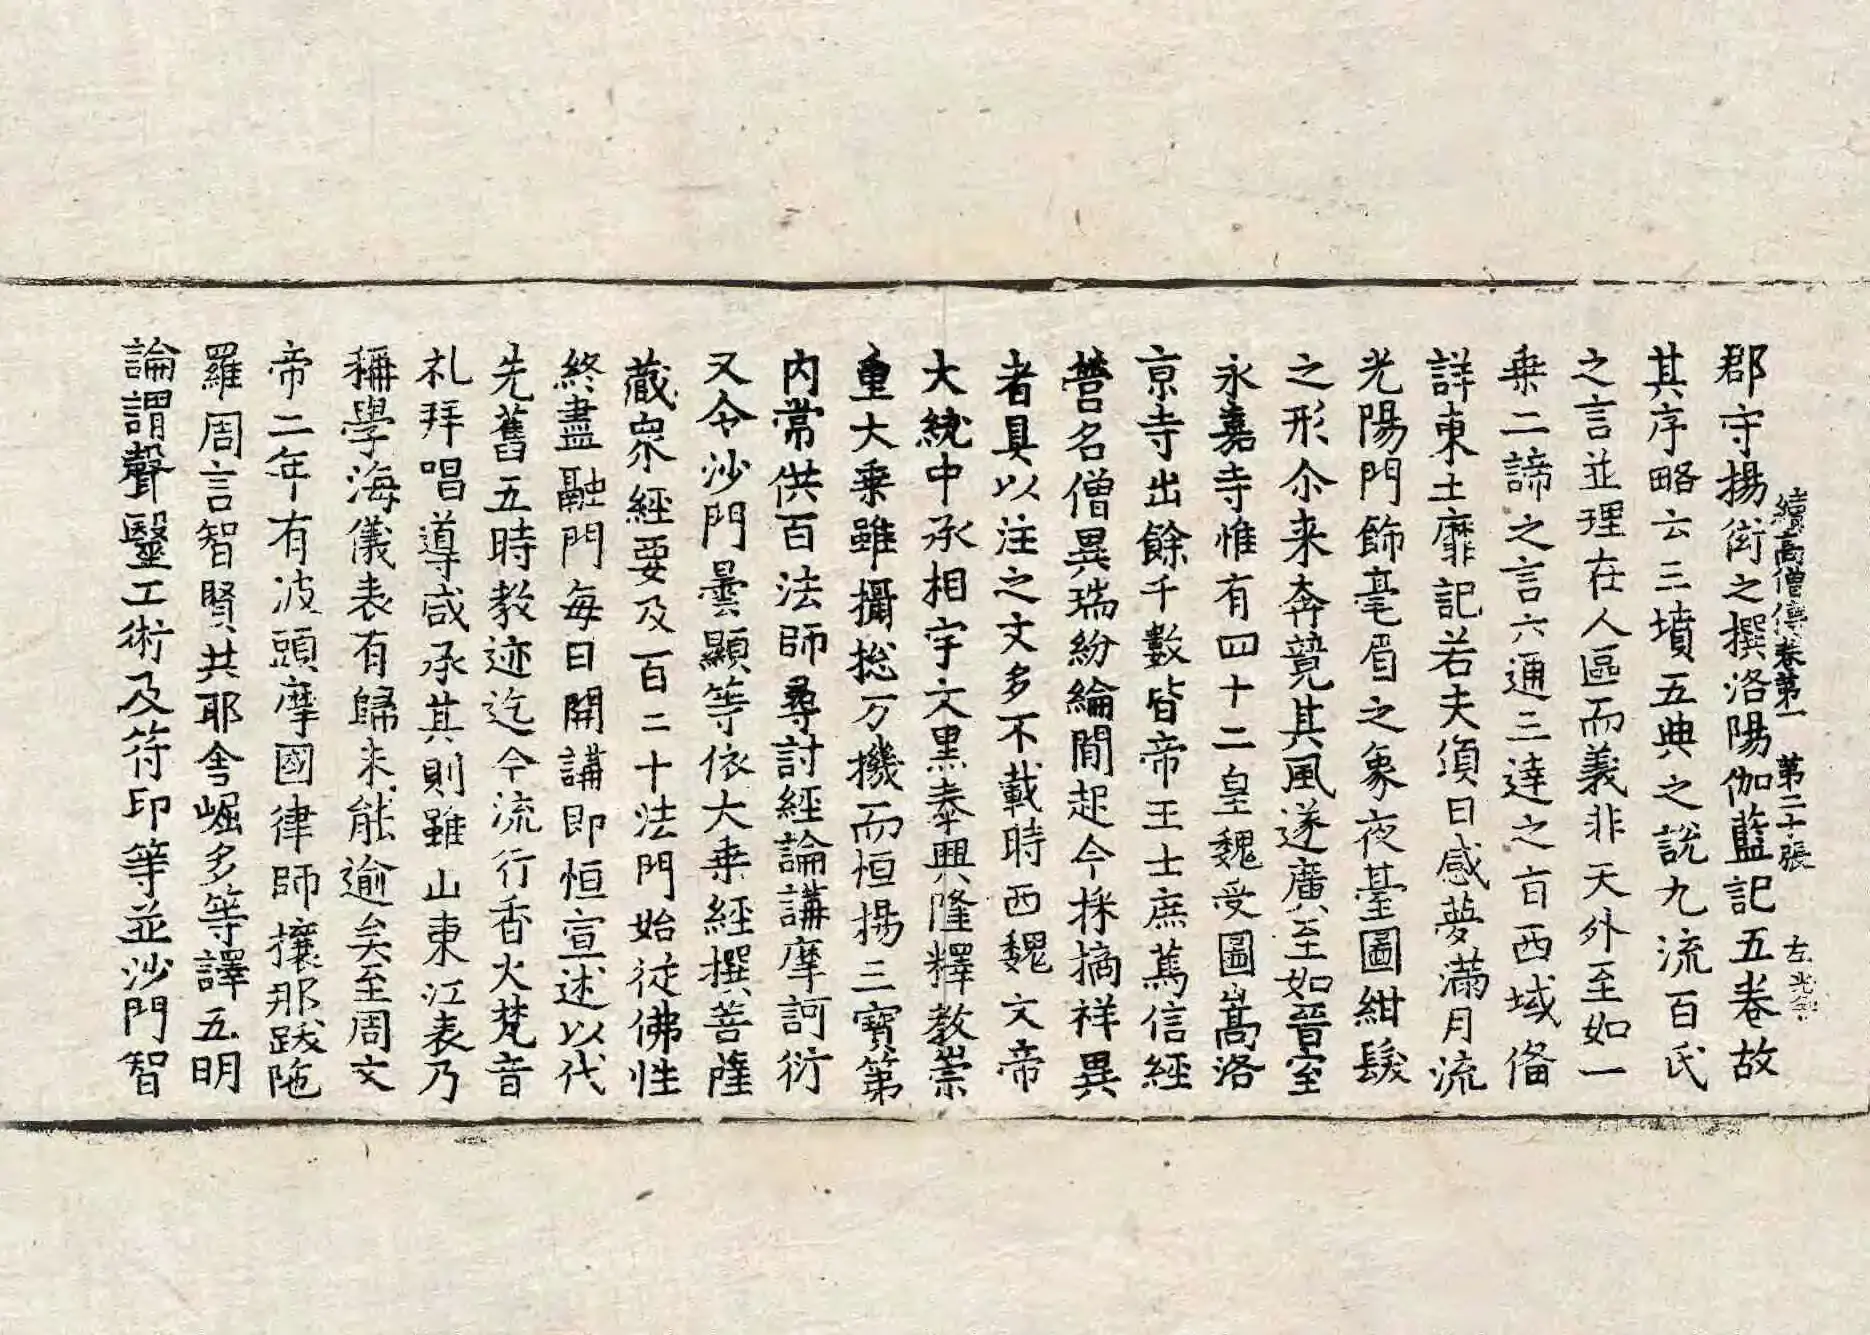 續高僧傳卷第一 第二十張
郡守揚衒之撰洛陽伽藍記五卷故
其序略云三墳五典之說九流百氏
之言並理在人區而義非天外至如一
乗二諦之言六通三達之㫖西域俻
詳東土靡記若夫湏日感夢滿月流
光陽門飾毫眉之象夜臺圖紺髮
之形尒来奔競其風遂廣至如晉室
永嘉寺惟有四十二皇魏受圖嵩洛
亰寺出餘千數皆帝王士庶篤信經
營名僧異瑞紛綸間起今採摘祥異
者具以注之文多不載時西魏文帝
大統中承相宇文黒泰興隆釋教崇
重大乗雖攝揔万機而恒揚三寶第
内常供百法師尋討經論講摩訶衍
又令沙門曇顯等依大乗經撰菩薩
藏衆經要及百二十法門始從佛性
終盡融門每日開講即恒宣述以代
先舊五時教迹迄今流行香火梵音
礼拜唱導咸承其則雖山東江表乃
稱學海儀表有歸未能逾矣至周文
帝二年有波頭摩國律師攘那跋陁
羅周言智賢共耶舎崛多等譯五明
論謂聲醫工術及符印等並沙門智